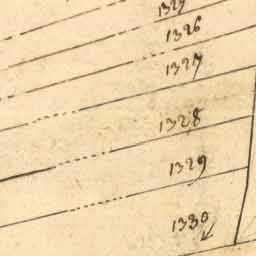 1325
1326
1327
1328
1329
1330